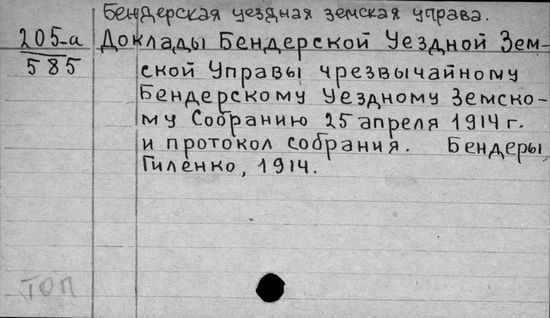 Бендерская уездная земская управа.
205-а
585
Доклады Бендерской Уездной Зем-
ской Управы чрезвычайному
Бендерскому Уездному Земско-
му Собранию 25 апреля 1914 г.
и протокол собрания. Бендеры,
Гиленко, 1914.
ТОП